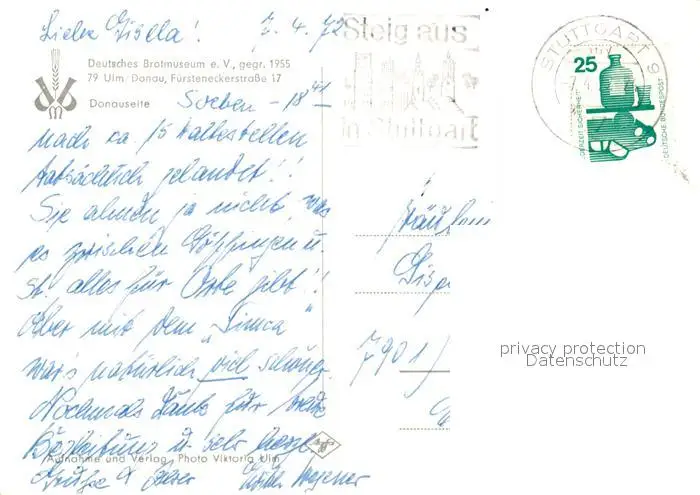 Liebe Gisela! 7. 4. 72
Deutsches Brotmuseum e. V., gegr. 1955
79 Ulm/Donau, Fürsteneckerstraße 17
Donauseite
Soeben - 18 41
nach ca. 15 Haltestellen
tatsächlich gelandet!!
Sie ahnen ja nicht, was
es zwischen Göppingen u.
St. alles für Orte gibt!!
Aber mit dem „Simca"
war's natürlich viel schöner
Nochmals Dank für
Begleitung u. sehr herzl.
Grüße
Aufnahme und Verlag Photo Viktoria Ulm
Steig aus
in Stuttgart
STUTTGART 9
25
JEDERZEIT SICHERHEIT
DEUTSCHE BUNDESPOST
Fräulein
7901
privacy protection
Datenschutz